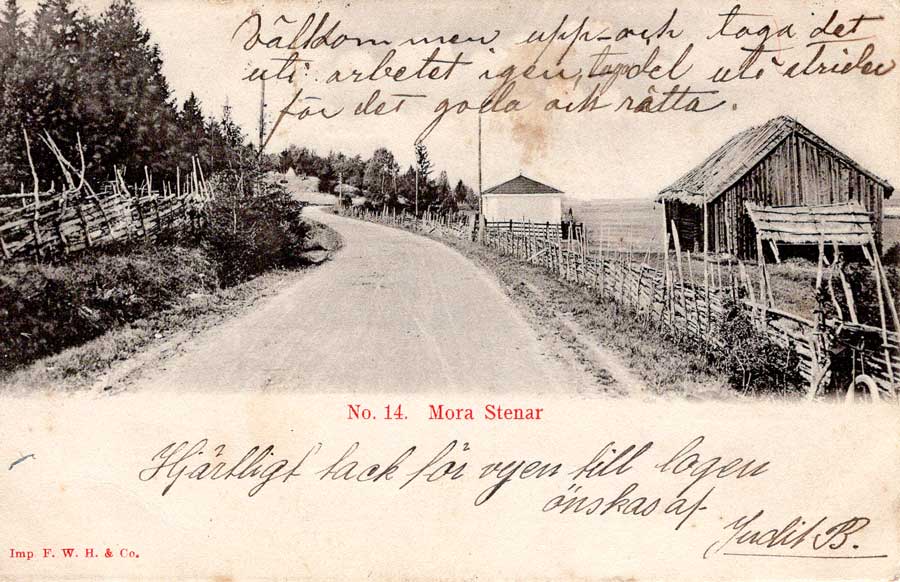 Välkommen upp och taga det
uti arbetet igen, taga del uti striden
för det goda och rätta.
No. 14. Mora Stenar
Hjärtligt tack för vyen till lagen
önskas af
Judit B.
Imp. F. W. H. & Co.